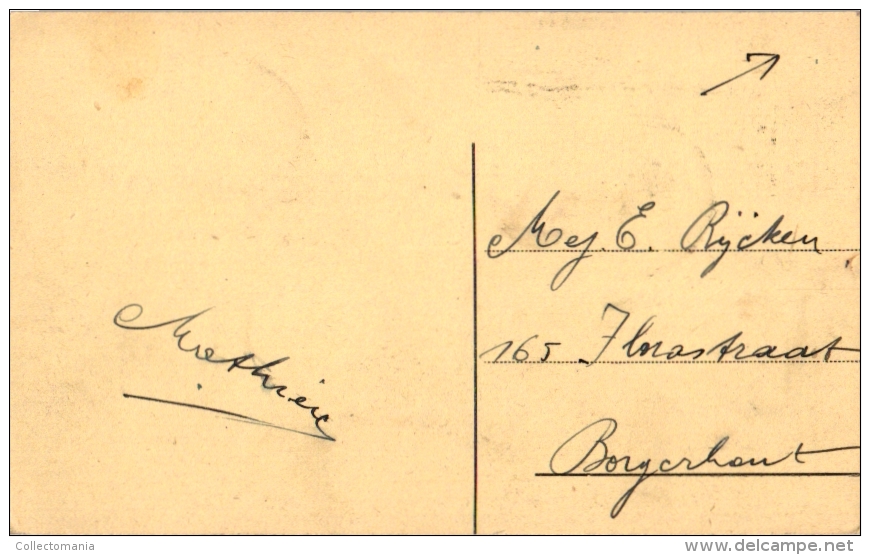 Mathieu
Mej. E. Rijcken
165 Florastraat
Borgerhout
Collectomania
www.delcampe.net